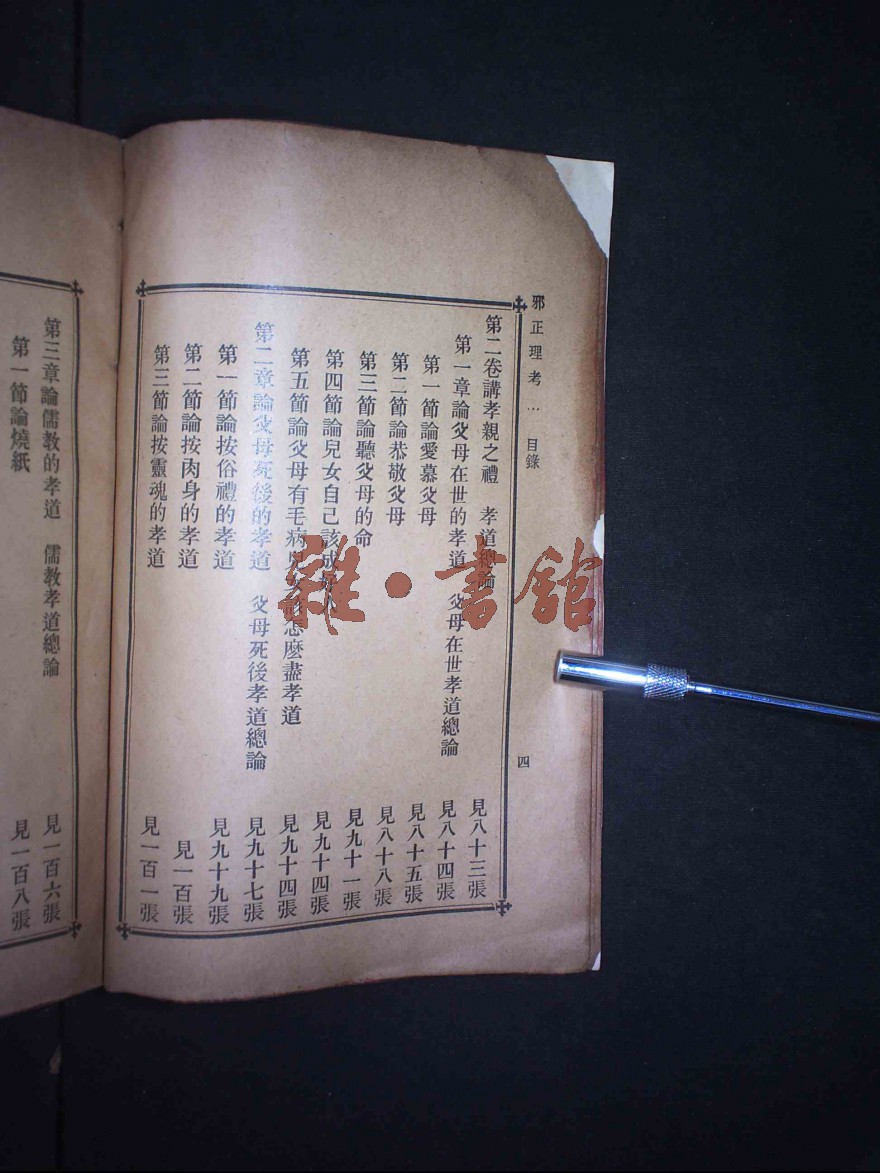 邪正理考⋯ 目錄 四
第二卷講孝親之禮 孝道總論 見八十三張
第一章論父母在世的孝道 父母在世孝道總論 見八十四張
第一節論愛慕父母 見八十五張
第二節論恭敬父母 見八十八張
第三節論聽父母的命 見九十一張
第四節論兒女自己該成好人 見九十四張
第五節論父母有毛病兒女該怎麽盡孝道 見九十四張
第二章論父母死後的孝道 父母死後孝道總論 見九十七張
第一節論按俗禮的孝道 見九十九張
第二節論按肉身的孝道 見一百張
第三節論按靈魂的孝道 見一百一張
第三章論儒教的孝道 儒教孝道總論 見一百六張
第一節論燒紙 見一百八張
雜·書館